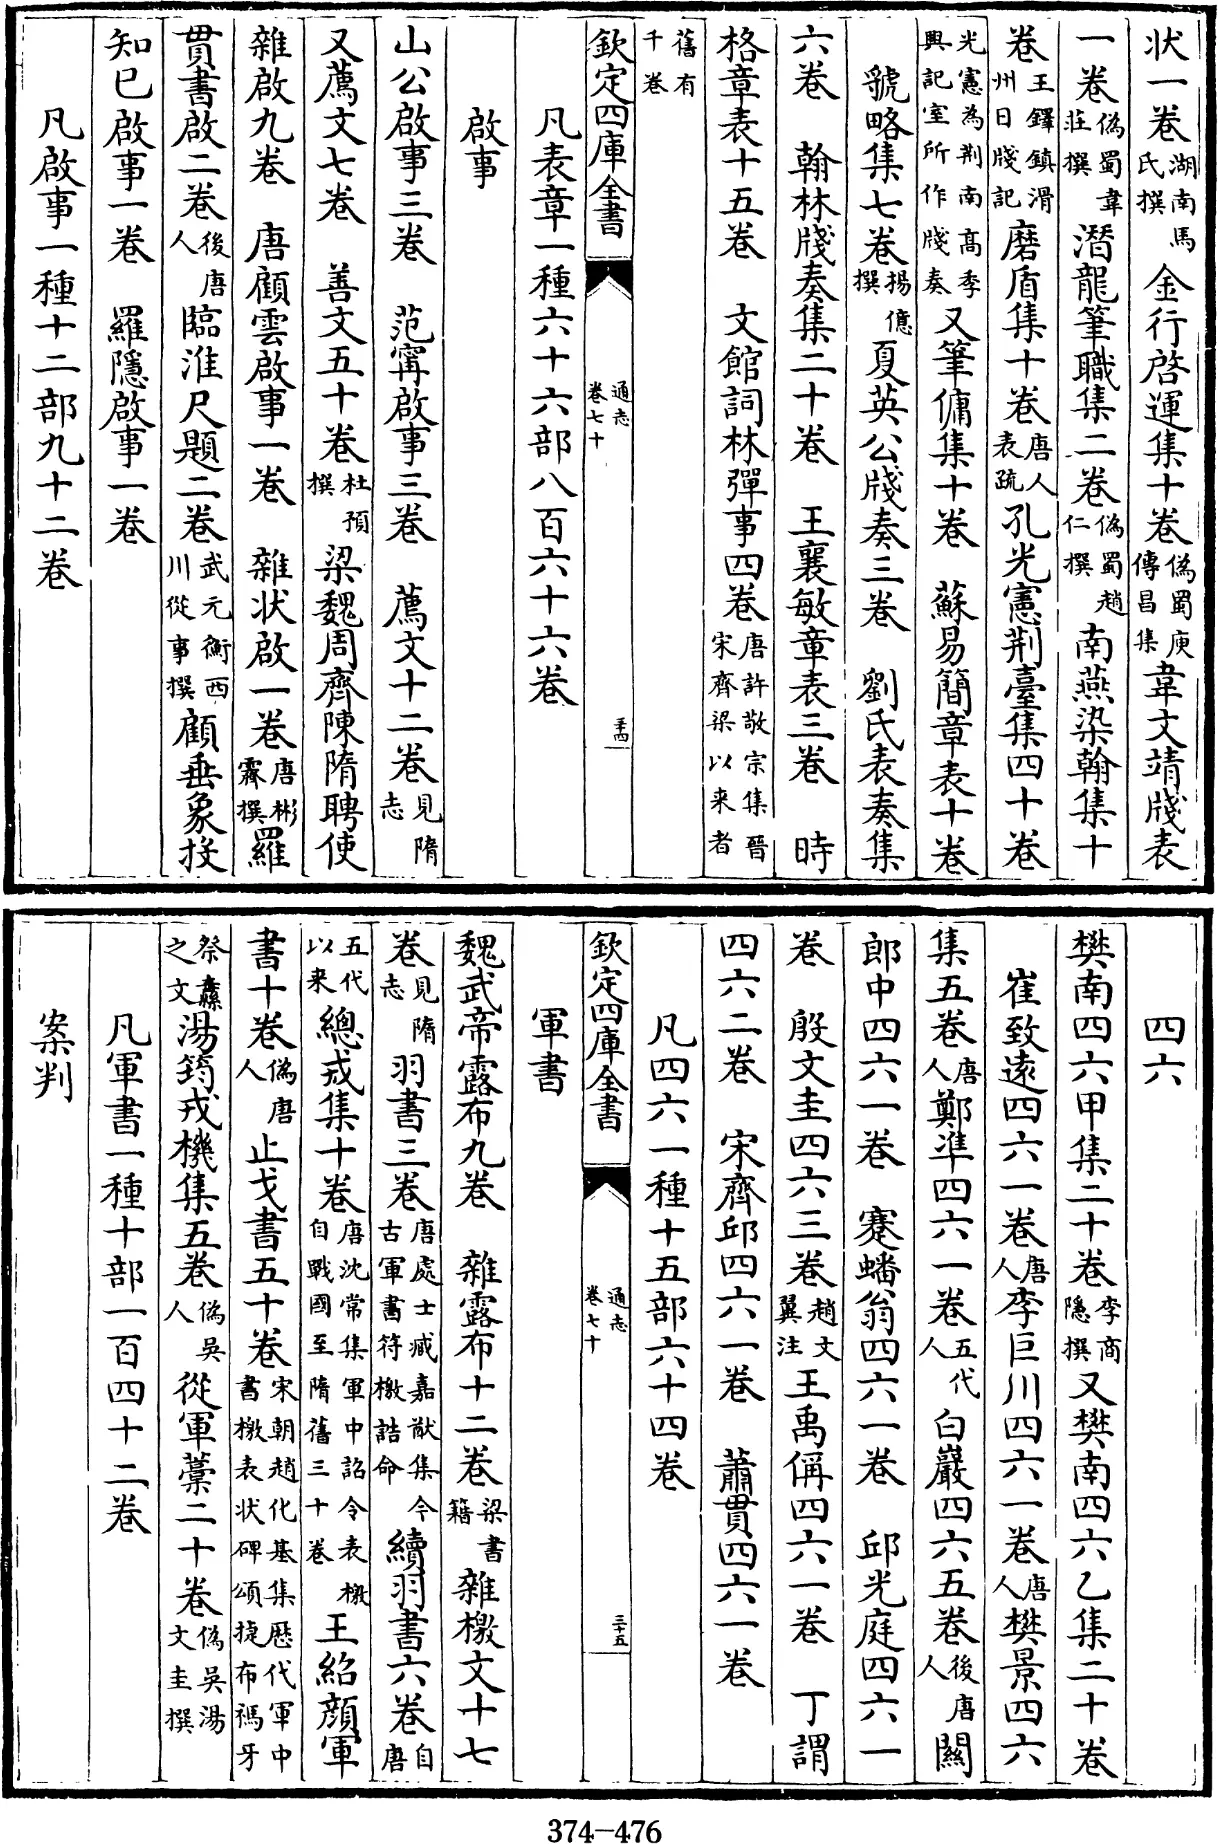 狀一卷湖南馬氏撰 金行啓運集十卷偽蜀庾傳昌集韋文靖牋表
一卷偽蜀韋莊撰 潛龍筆職集二卷偽蜀趙仁撰 南燕染翰集十
卷王鐸鎮滑州日牋記 磨盾集十卷唐人表疏孔光憲荆臺集四十卷
光憲為荆南高季興記室所作牋奏 又筆傭集十卷 蘇易簡章表十卷
虢略集七卷楊億撰 夏英公牋奏三卷 劉氏表奏集
六卷 翰林牋奏集二十卷 王襄敏章表三卷 時
格章表十五卷 文館詞林彈事四卷唐許敬宗集晉宋齊梁以來者
舊有千卷
欽定四庫全書 通志卷七十 三十四
凡表章一種六十六部八百六十六卷
啟事
山公啟事三卷 范甯啟事三卷 薦文十二卷見隋志
又薦文七卷 善文五十卷杜預撰 梁魏周齊陳隋聘使
雜啟九卷 唐顧雲啟事一卷 雜狀啟一卷唐彬霖撰羅
貫書啟二卷後唐人 臨淮尺題二卷武元衡西川從事撰 顧垂象投
知已啟事一卷 羅隱啟事一卷
凡啟事一種十二部九十二卷
四六
樊南四六甲集二十卷李商隱撰 又樊南四六乙集二十卷
崔致遠四六一卷唐人李巨川四六一卷唐人樊景四六
集五卷唐人鄭準四六一卷五代人 白巖四六五卷後唐人 關
郎中四六一卷 蹇蟠翁四六一卷 邱光庭四六一
卷 殷文圭四六三卷趙文翼注 王禹偁四六一卷 丁謂
四六二卷 宋齊邱四六一卷 蕭貫四六一卷
凡四六一種十五部六十四卷
欽定四庫全書 通志卷七十 三十五
軍書
魏武帝露布九卷 雜露布十二卷梁書籍 雜檄文十七
卷見隋志 羽書三卷唐處士臧嘉猷集今古軍書符檄誥命 續羽書六卷自唐
五代以来 總戎集十卷唐沈常集軍中詔令表檄自戰國至隋舊三十卷 王紹顔軍
書十卷偽唐人 止戈書五十卷宋朝趙化基集歷代軍中書檄表狀碑頌捷布禡牙
祭纛之文 湯筠戎機集五卷偽吳人 從軍藁二十卷偽吳湯文圭撰
凡軍書一種十部一百四十二卷
案判
374-476